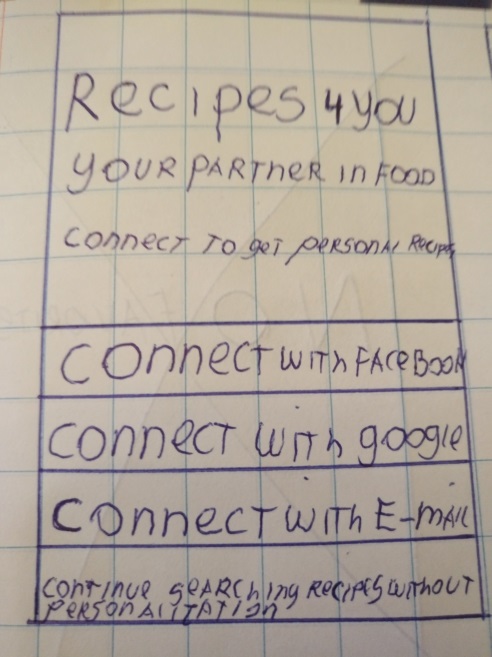 Recipes 4 you
your partner in food
connect to get personal Recipes
connect with Facebook
connect with google
connect with E-mail
continue searching recipes without
personalitation